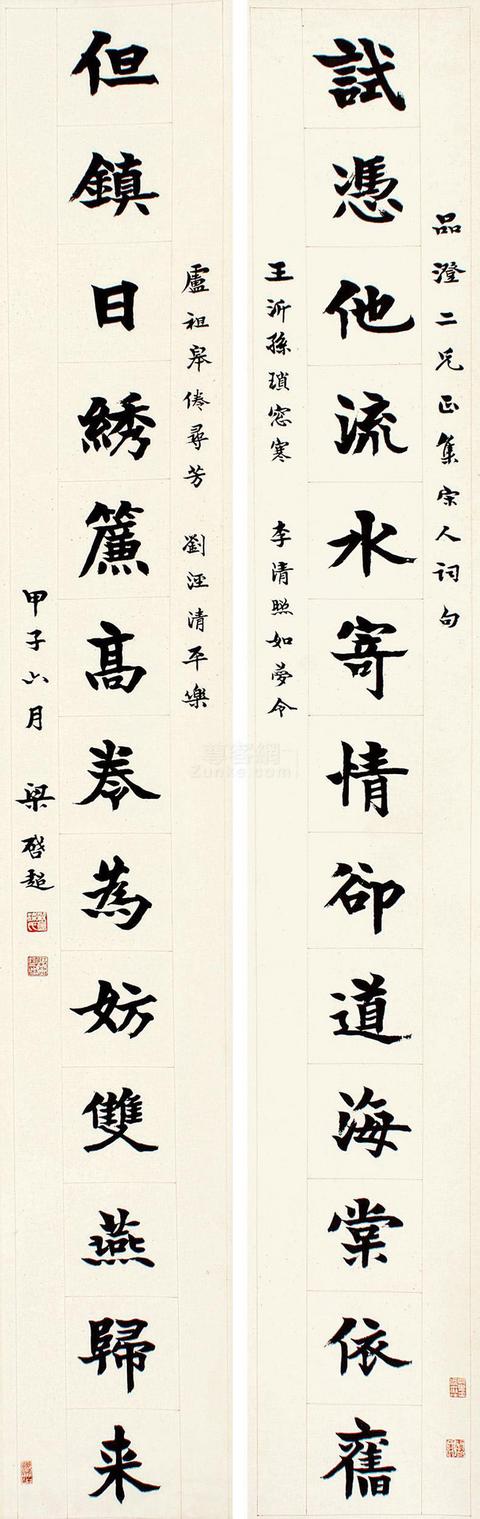 品澄二兄正集宋人词句
試憑他流水寄情卻道海棠依舊
王沂孫瑣窓寒 李清照如夢令
盧祖皋倦尋芳 劉涇清平樂
但鎮日綉簾高卷為妨雙燕歸来
甲子六月 梁啓超
尊客網
Zunke.com